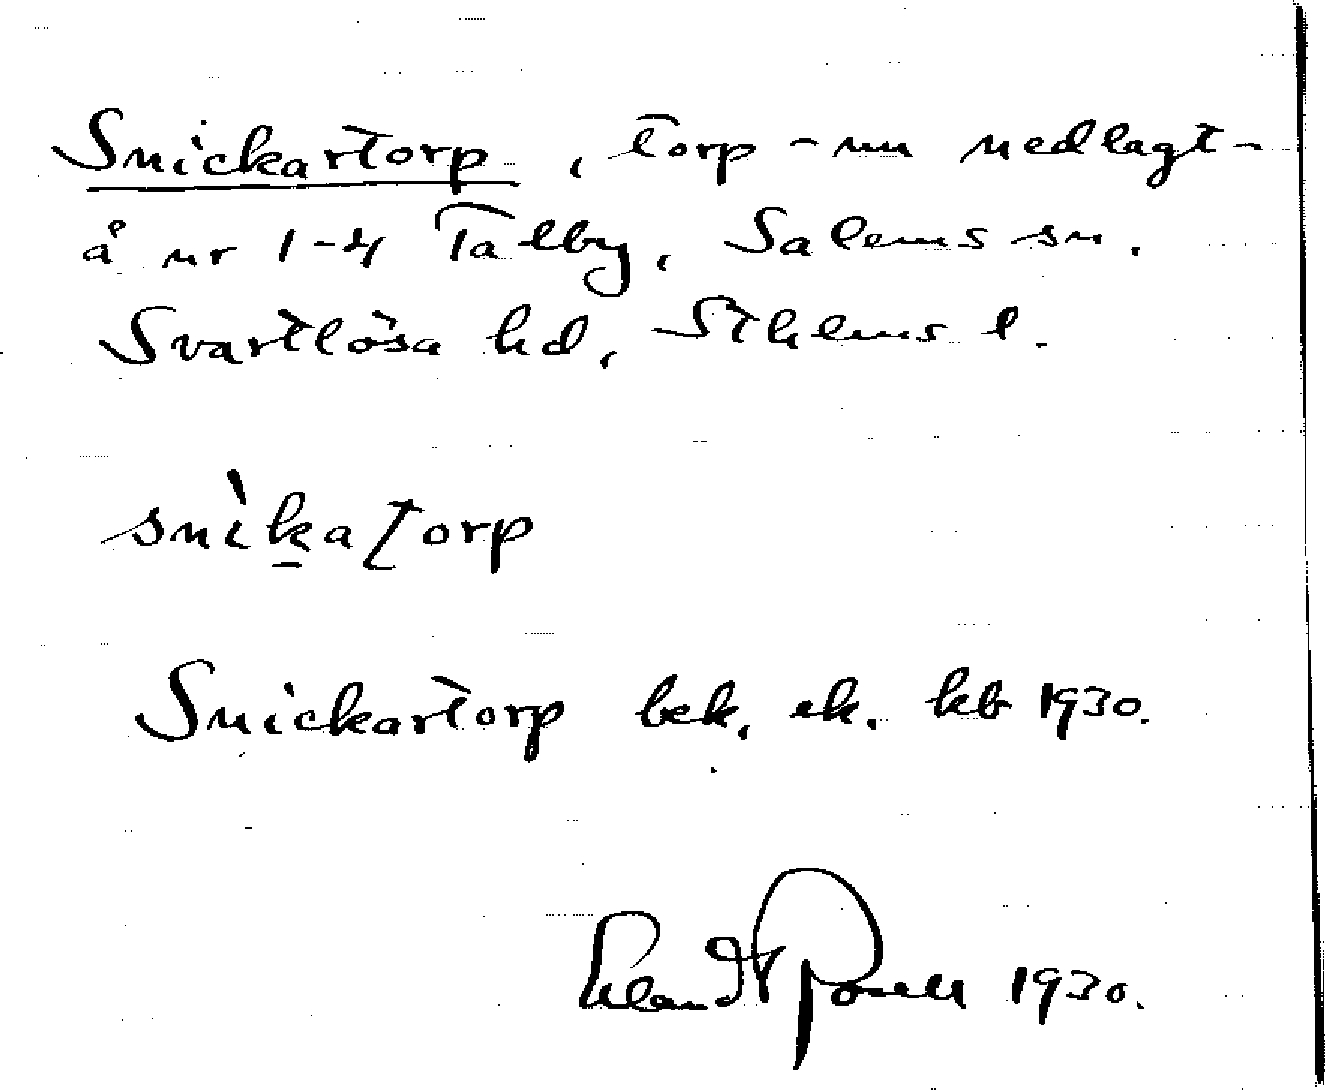 Snickartorp, torp - nu nedlagt -
å nr 1-4 Talby, Salems sn.
Svartlösa hd, Sthlms l.
snìkatorp
Snickartorp bek. ek. kb 1930.
1930.